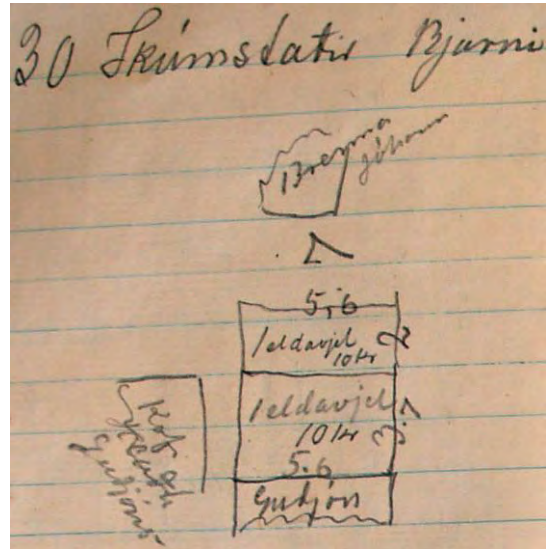 30 Skúmstaðir Bjarni
Brenna
Jóhann
5,6
1 eldavjel
10 kr
2
1 eldavjel
10 kr
3,7
5.6
Guðjón
Kof
Guðjóns